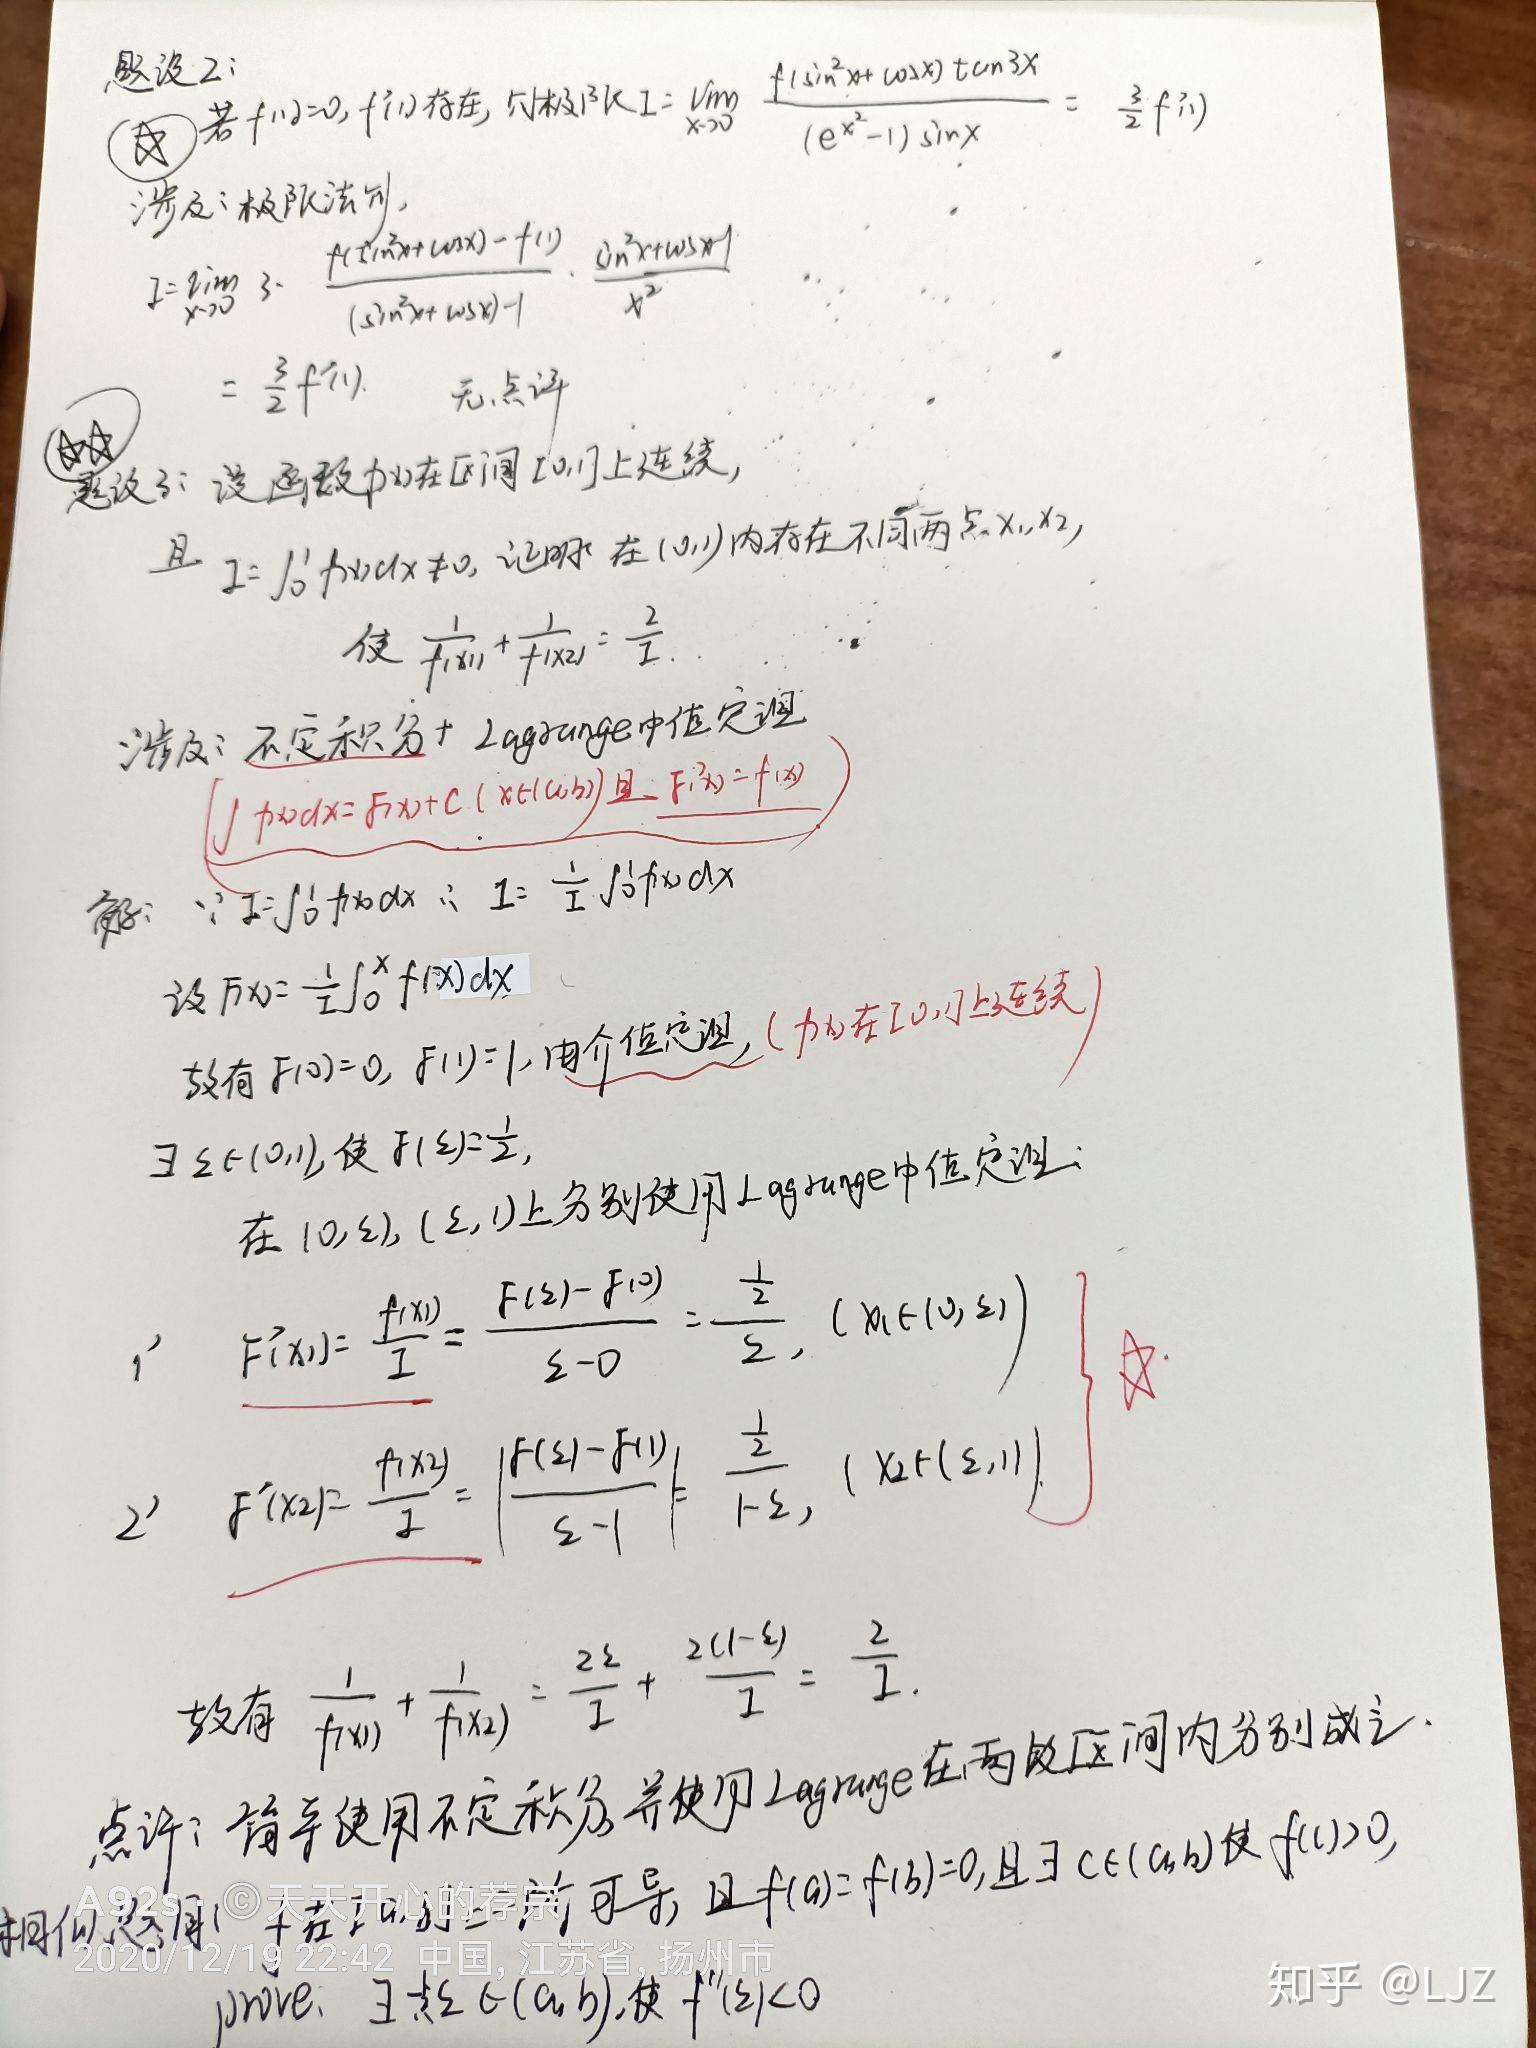 题设2:
若 f(1)=0, f'(1)存在, 求极限 I= lim x→0 f(sin²x+cosx)tan3x / (e^x²-1)sinx = 3/2 f'(1)
涉及: 极限法则,
I= lim x→0 3· f(sin²x+cosx)-f(1) / (sin²x+cosx)-1 · sin²x+cosx-1 / x²
= 3/2 f'(1). 无点评
题设3: 设函数f(x)在区间[0,1]上连续,
且 I=∫₀¹f(x)dx≠0, 证明 在(0,1)内存在不同两点x₁,x₂,
使 1/f(x1) + 1/f(x2) = 2/I.
涉及: 不定积分+Lagrange中值定理
(∫f(x)dx=F(x)+C (x∈(a,b)) 且 F'(x)=f(x))
解: ∵ I=∫₀¹f(x)dx ∴ 1= 1/I ∫₀¹f(x)dx
设F(x)= 1/I ∫₀ˣ f(x)dx
故有 F(0)=0, F(1)=1, 由介值定理, (f(x)在[0,1]上连续)
∃ξ∈(0,1), 使 F(ξ)=1/2,
在(0,ξ), (ξ,1)上分别使用Lagrange中值定理:
1' F'(x1)= f(x1)/I = F(ξ)-F(0) / ξ-0 = 1/2 / ξ, (x1∈(0,ξ))
2' F'(x2)= f(x2)/I = |F(ξ)-F(1) / ξ-1| = 1/2 / 1-ξ, (x2∈(ξ,1))
故有 1/f(x1) + 1/f(x2) = 2ξ/I + 2(1-ξ)/I = 2/I.
点评: 使用不定积分, 并使用Lagrange在两段区间内分别成立.
相似 f在[a,b]上 可导, 且f(a)=f(b)=0, 且∃c∈(a,b)使f(c)>0,
prove: ∃点ξ∈(a,b), 使f''(ξ)<0
A92s ©天天开心的荐宗
2020/12/19 22:42 中国, 江苏省, 扬州市
知乎 @LJZ